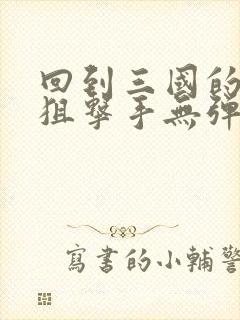 回到三國的
狙擊手無彈
寫書的小輔警